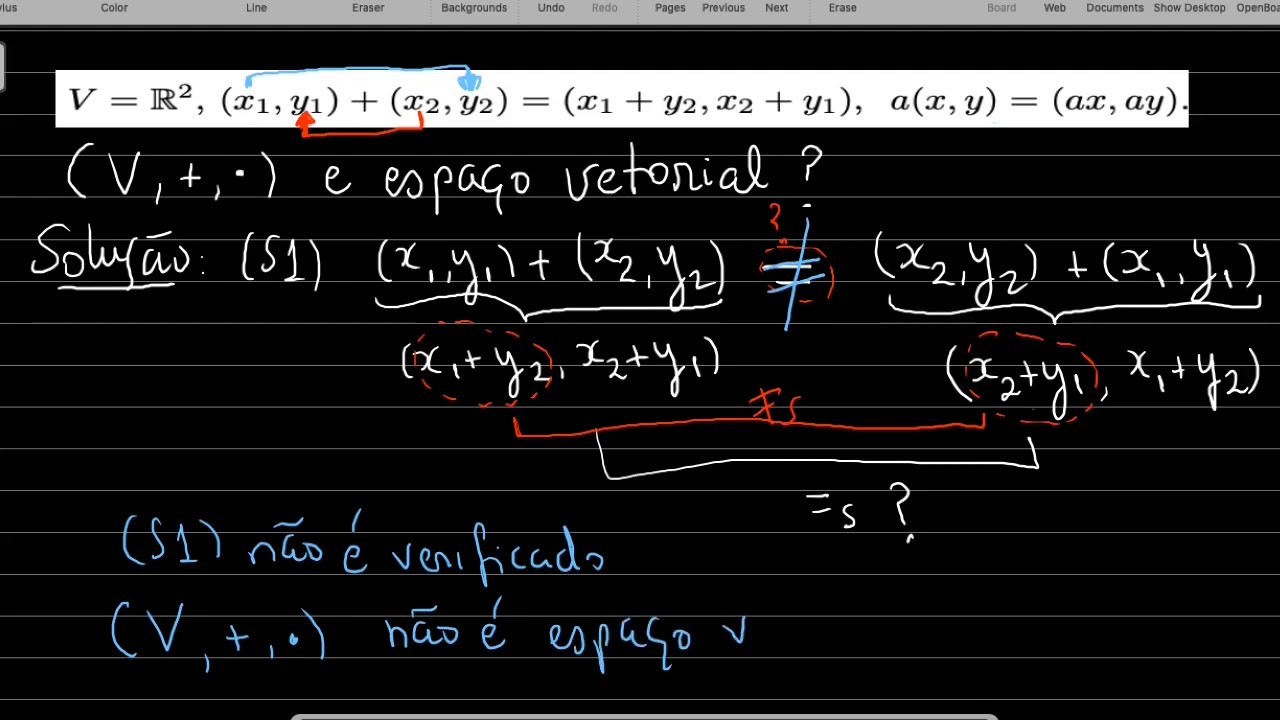 vius Color Line Eraser Backgrounds Undo Redo Pages Previous Next Erase Board Web Documents Show Desktop OpenBoa
V = ℝ², (x₁, y₁) + (x₂, y₂) = (x₁ + y₂, x₂ + y₁), a(x, y) = (ax, ay).
(V, +, ·) e espaço vetorial ?
Solução: (S1) (x₁, y₁) + (x₂, y₂) ≠ ? (x₂, y₂) + (x₁, y₁)
(x₁ + y₂, x₂ + y₁) (x₂ + y₁, x₁ + y₂)
≠s
=s ?
(S1) não é verificado
(V, +, ·) não é espaço v